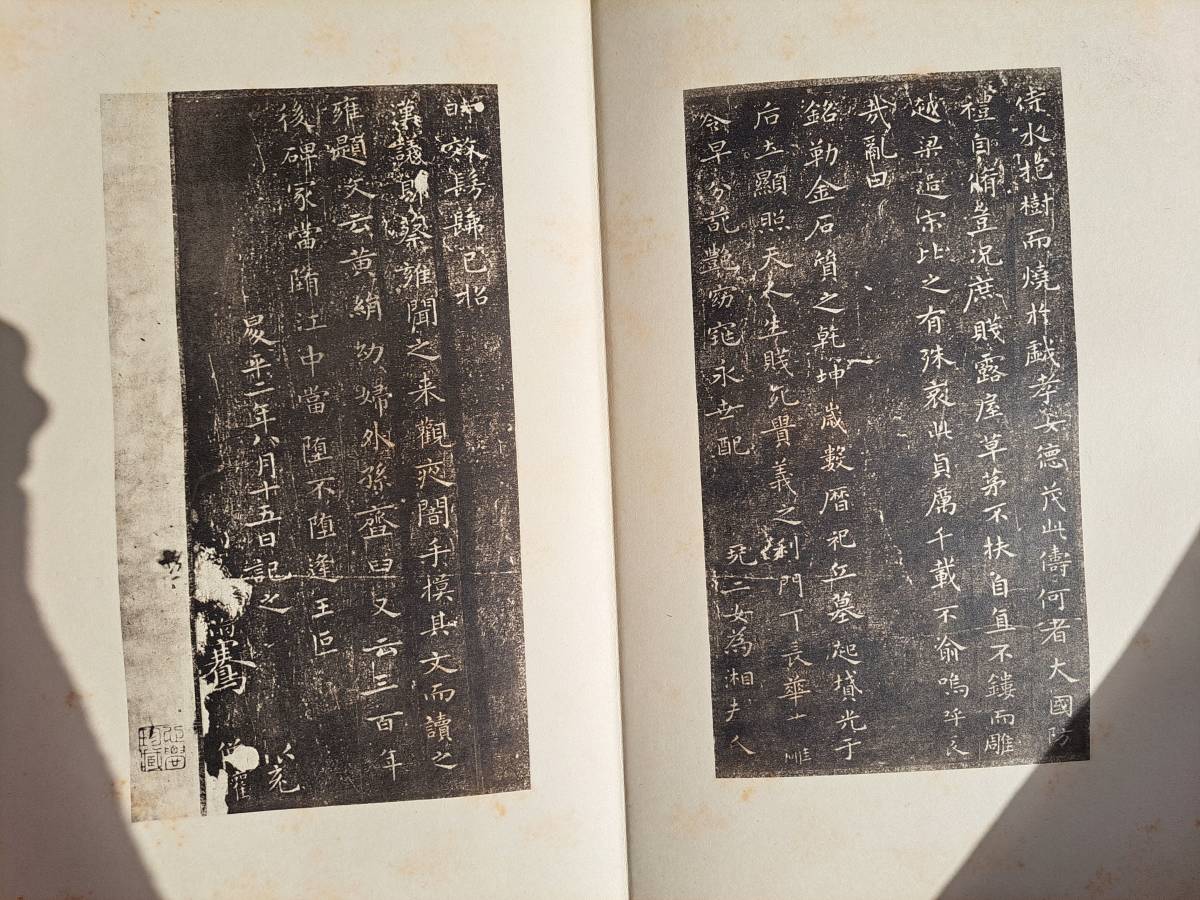 待水抱樹而燒於戲孝女德茂此儔何者大國防
禮自脩豈況庶賤露屋草茅不扶自直不鏤而雕
越梁過宋比之有殊哀此貞厲千載不渝嗚呼哀
哉亂曰
銘勒金石質之乾坤歲數曆祀丘墓起墳光于
后土顯照天人生賤死貴義之利門華
早分葩艷窈窕永世配 二女為湘夫人
時效髣髴已招
漢議郎蔡雍聞之来觀夜闇手摸其文而讀之
雍題文云黃絹幼婦外孫齏臼又云三百年
後碑冢當墮江中當墮不墮逢王叵
昇平二年八月十五日記之
騫
僧權